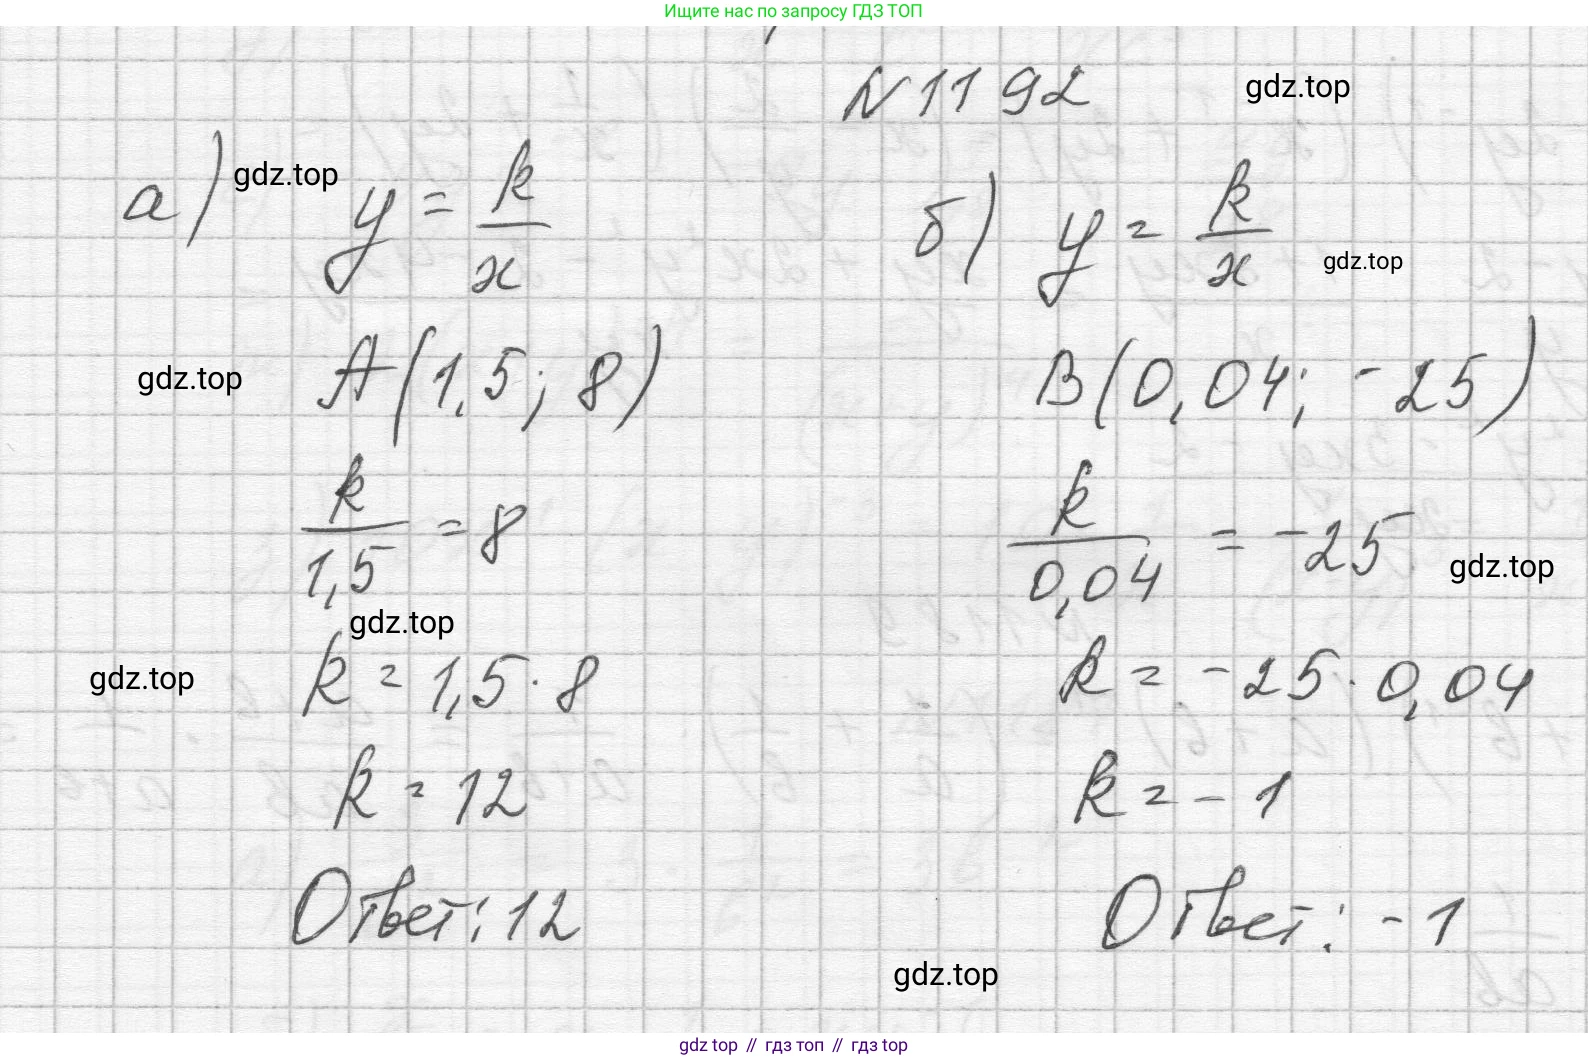 Ищите нас по запросу ГДЗ ТОП
N 1192
gdz.top
а)
gdz.top
y = k/x
gdz.top
A(1,5; 8)
k/1,5 = 8
gdz.top
gdz.top
k = 1,5 · 8
k = 12
Ответ: 12
б)
y = k/x
gdz.top
B(0,04; -25)
k/0,04 = -25
gdz.top
k = -25 · 0,04
k = -1
Ответ: -1
gdz.top
gdz top // гдз топ // гдз top